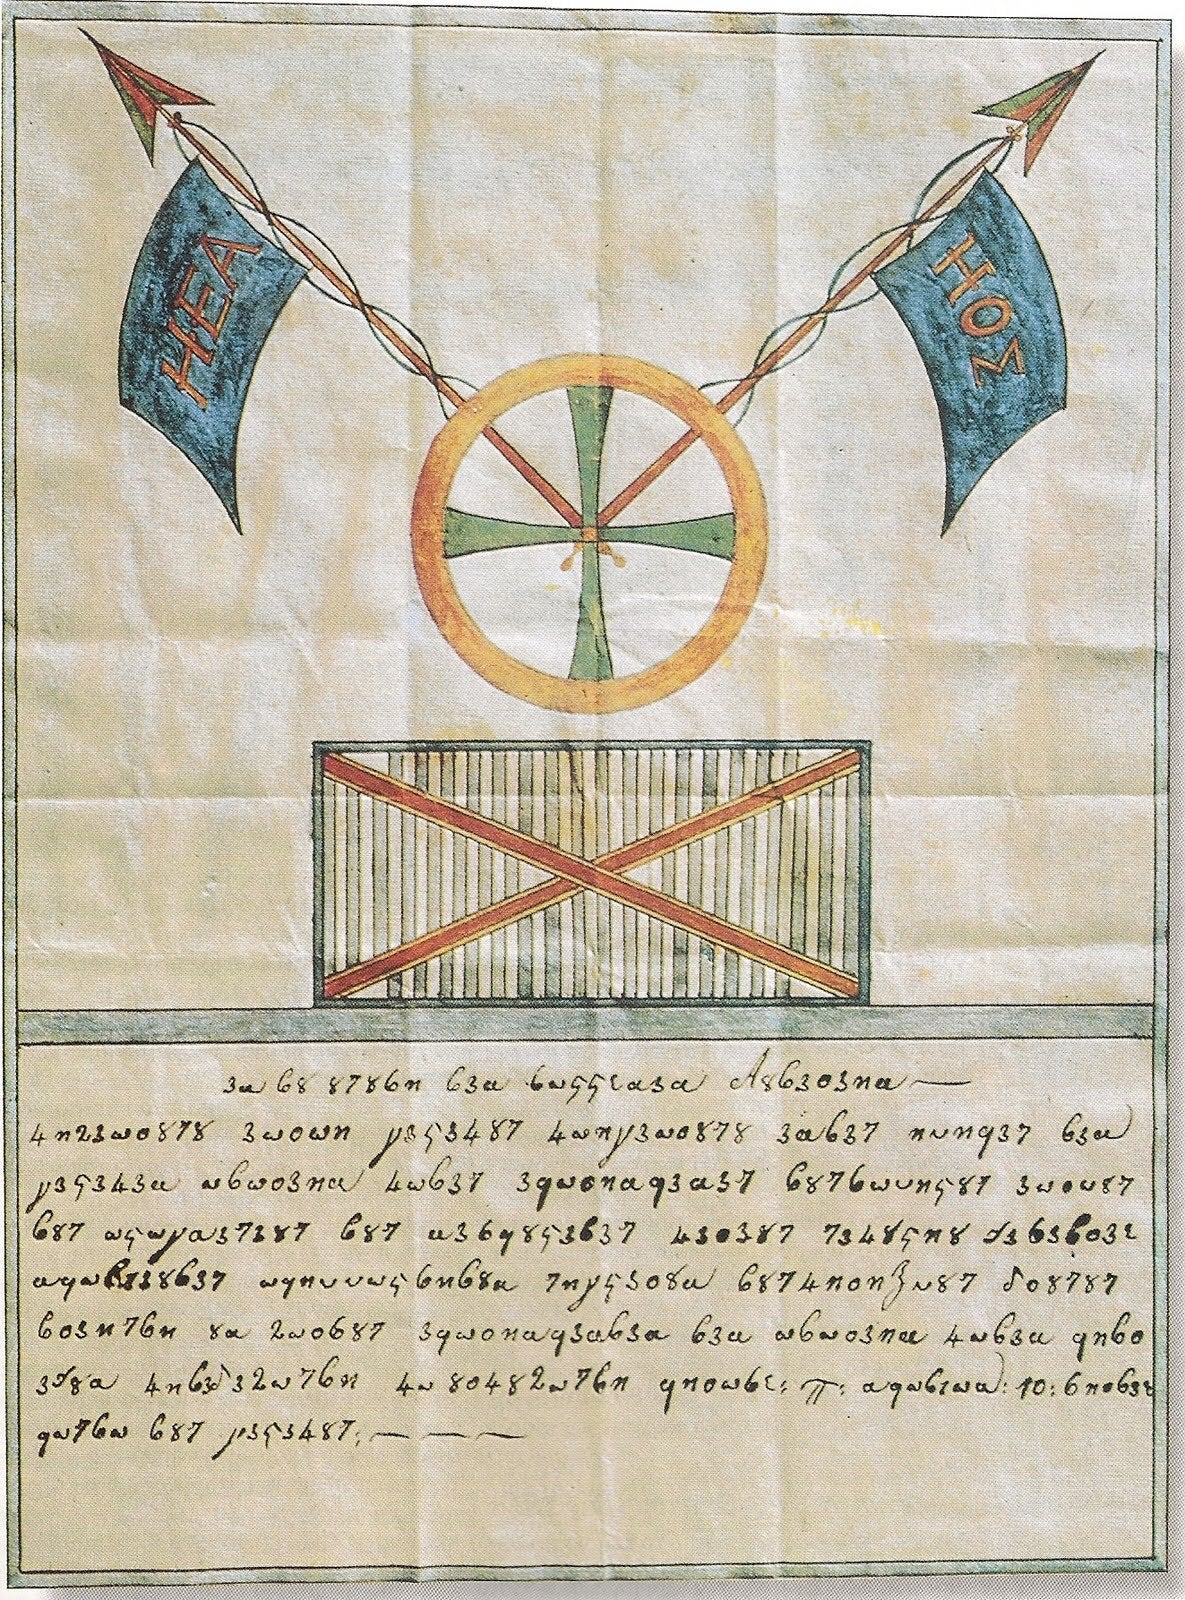 ΗΕΑ
ΗΟΣ
3α 68 87868η 63α 6ωςςεα3α Λ863ο3ηα
4η23ωο878 3ωοωη γ3ς3487 4ωηγ3ωο878 3α637 ηυηq37 63α
γ3ς343α ω6ωο3ηα 4ω637 3qωοηαq3α37 6876ωυης87 3ωου87
687 ωςωγα37387 687 α36q8ς3637 43ο387 7348ςη8
αqω673863 7 ωqηυυως 6η68α 7ηγς3ο8α 6874ηοηζυ87 δο8787
6ο3η76η 8α 2ωο687 3qωοηαq3α63α 63α ω6ωο3ηα 4ω63α qη6ο
3δ8α 4η63δ32ω76η 4ω 8ο482ω76η qηοω6ε: π: αqω6ιωα: 10: 6ηο63ε
qω76ω 687 γ3ς3487: